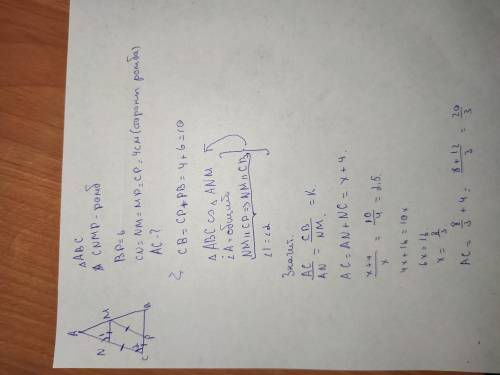 A
N
M
C
P
B
△ABC
CNMP - ромб
BP=6
CN=NM=MP=CP=4см (стороны ромба)
AC-?
CB=CP+PB=4+6=10
△ABC ∞ △ANM
∠A-общий
NM∥CP=>NM∥CB
∠1=∠2
Значит.
AC/AN = CB/NM = K.
AC=AN+NC=x+4.
x+4/x = 10/4 = 2,5.
4x+16=10x
6x=16
x=8/3
AC= 8/3 +4= 8+12/3 = 20/3